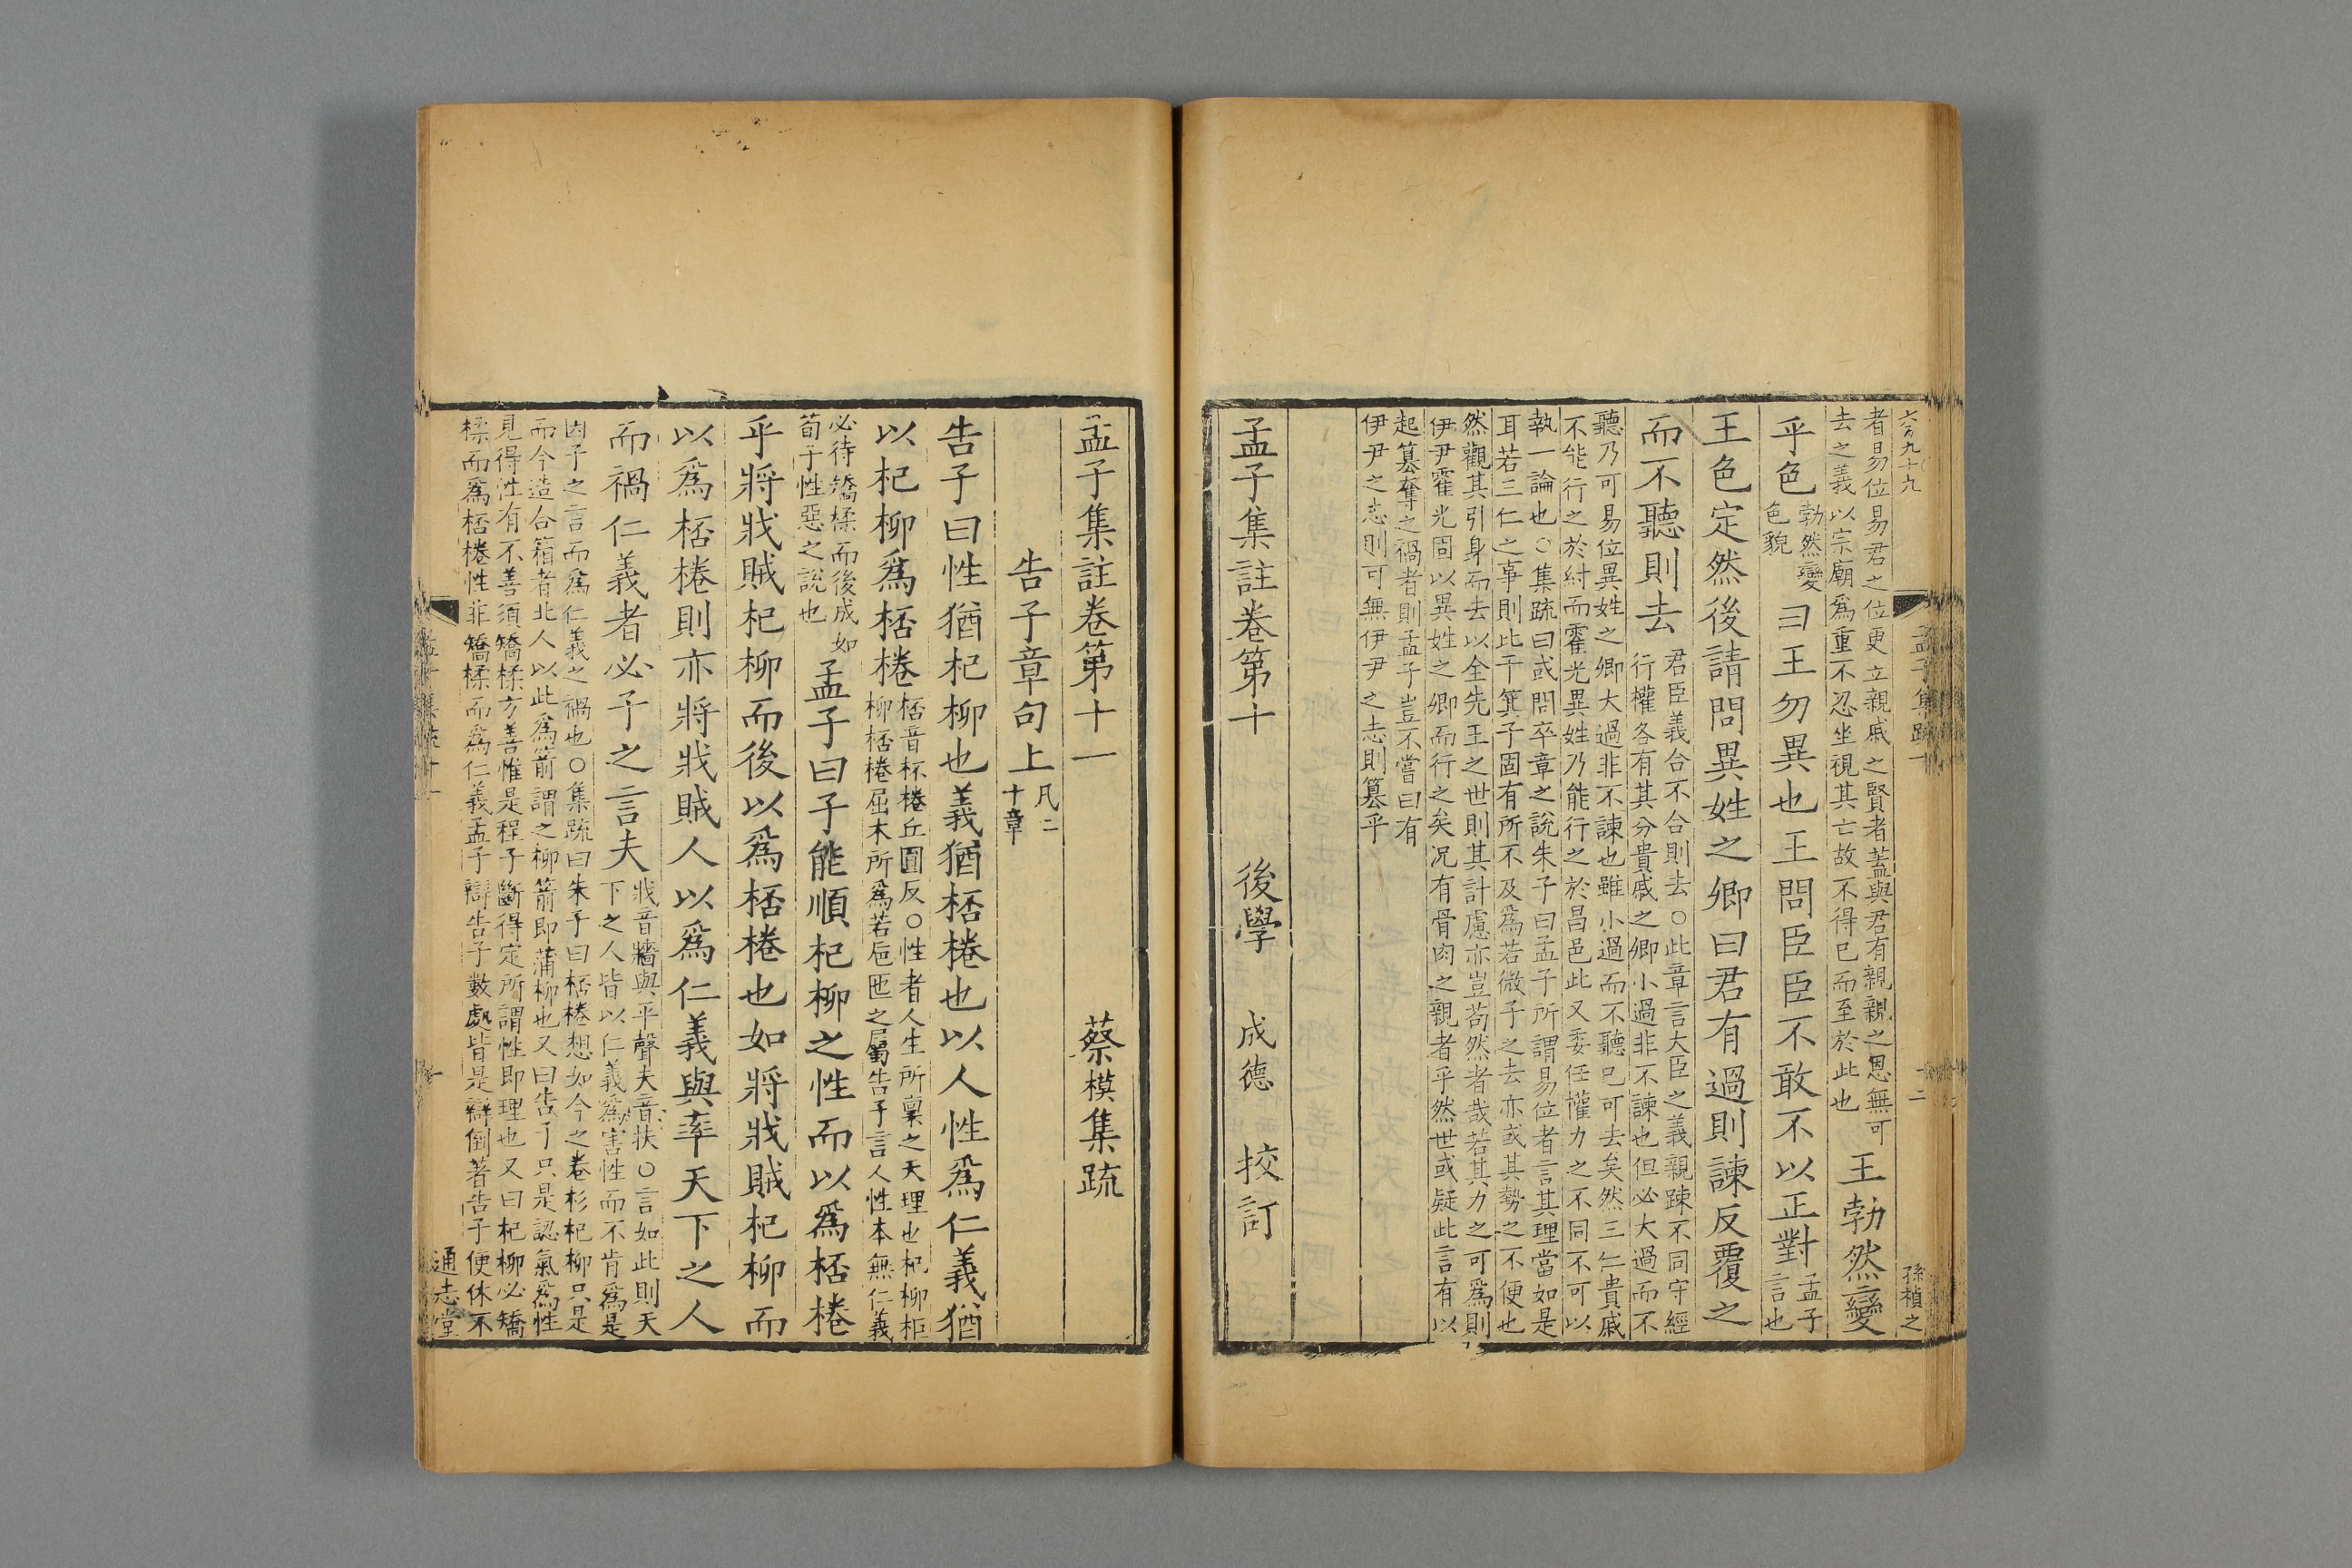 六百九十九
孟子集疏十
十二
孫楨之
者易位易君之位更立親戚之賢者蓋與君有親親之恩無可
去之義以宗廟爲重不忍坐視其亡故不得已而至於此也
王勃然變
乎色
勃然變
色貌
曰王勿異也王問臣臣不敢不以正對
孟子
言也
王色定然後請問異姓之卿曰君有過則諫反覆之
而不聽則去
君臣義合不合則去○此章言大臣之義親踈不同守經
行權各有其分貴戚之卿小過非不諫也但必大過而不
聽乃可易位異姓之卿大過非不諫也雖小過而不聽已可去矣然三仁貴戚
不能行之於紂而霍光異姓乃能行之於昌邑此又委任權力之不同不可以
執一論也○集疏曰或問卒章之說朱子曰孟子所謂易位者言其理當如是
耳若三仁之事則比干箕子固有所不及爲若微子之去亦或其勢之不便也
然觀其引身而去以全先王之世則其計慮亦豈苟然者哉若其力之可爲則
伊尹霍光固以異姓之卿而行之矣况有骨肉之親者乎然世或疑此言有以
起簒奪之禍者則孟子豈不嘗曰有
伊尹之志則可無伊尹之志則簒乎
孟子集註卷第十　後學　成德　挍訂
孟子集註卷第十一　蔡模集疏
告子章句上
凡二
十章
告子曰性猶杞柳也義猶桮棬也以人性爲仁義猶
以杞柳爲桮棬
桮音杯棬丘圓反○性者人生所稟之天理也杞柳柜
柳桮棬屈木所爲若巵匜之屬告子言人性本無仁義
必待矯揉而後成如
荀子性惡之說也
孟子曰子能順杞柳之性而以爲桮棬
乎將戕賊杞柳而後以爲桮棬也如將戕賊杞柳而
以爲桮棬則亦將戕賊人以爲仁義與率天下之人
而禍仁義者必子之言夫
戕音牆與平聲夫音扶○言如此則天
下之人皆以仁義爲害性而不肯爲是
因子之言而爲仁義之禍也○集疏曰朱子曰桮棬想如今之卷杉杞柳只是
而今造合箱者北人以此爲箭謂之柳箭即蒲柳也又曰告子只是認氣爲性
見得性有不善須矯揉方善惟是程子斷得定所謂性即理也又曰杞柳必矯
揉而爲桮棬性非矯揉而爲仁義孟子辯告子數處皆是辯倒著告子便休不
孟子集疏十一
一
通志堂